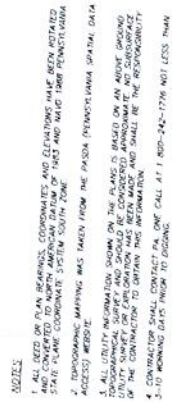 NOTES
1. ALL DEED OR PLAN BEARINGS, COORDINATES AND ELEVATIONS HAVE BEEN ROTATED
AND CONVERTED TO NORTH AMERICAN DATUM OF 1983 AND NAVD 1988 PENNSYLVANIA
STATE PLANE COORDINATE SYSTEM SOUTH ZONE.
2. TOPOGRAPHIC MAPPING WAS TAKEN FROM THE PASDA (PENNSYLVANIA SPATIAL DATA
ACCESS) WEBSITE.
3. ALL UTILITY INFORMATION SHOWN ON THE PLANS IS BASED ON AN ABOVE GROUND
TOPOGRAPHICAL SURVEY AND SHOULD BE CONSIDERED APPROXIMATE. NO SUBSURFACE
UTILITY SURVEY OR EXPLORATION HAS BEEN MADE AND SHALL BE THE RESPONSIBILITY
OF THE CONTRACTOR TO OBTAIN THIS INFORMATION.
4. CONTRACTOR SHALL CONTACT PA. ONE CALL AT 1-800-242-1776 NOT LESS THAN
3-10 WORKING DAYS PRIOR TO DIGGING.